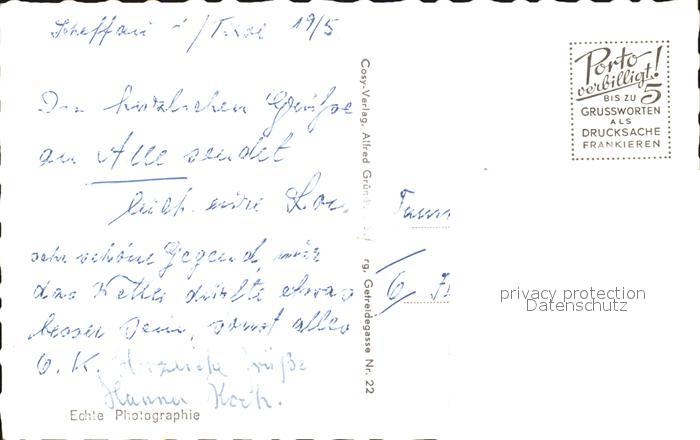 Scheffau i/Tirol 19/5
Die herzlichen Grüße
an Alle sendet
Euch eure
sehr schöne Gegend, nur
das Wetter dürfte etwas
besser sein, sonst alles
O.K. Herzliche Grüße
Hanna Koch.
Echte Photographie
Cosy-Verlag, Alfred Gründ rg, Getreidegasse Nr. 22
Porto
verbilligt!
BIS ZU 5
GRUSSWORTEN
ALS
DRUCKSACHE
FRANKIEREN
6
privacy protection
Datenschutz